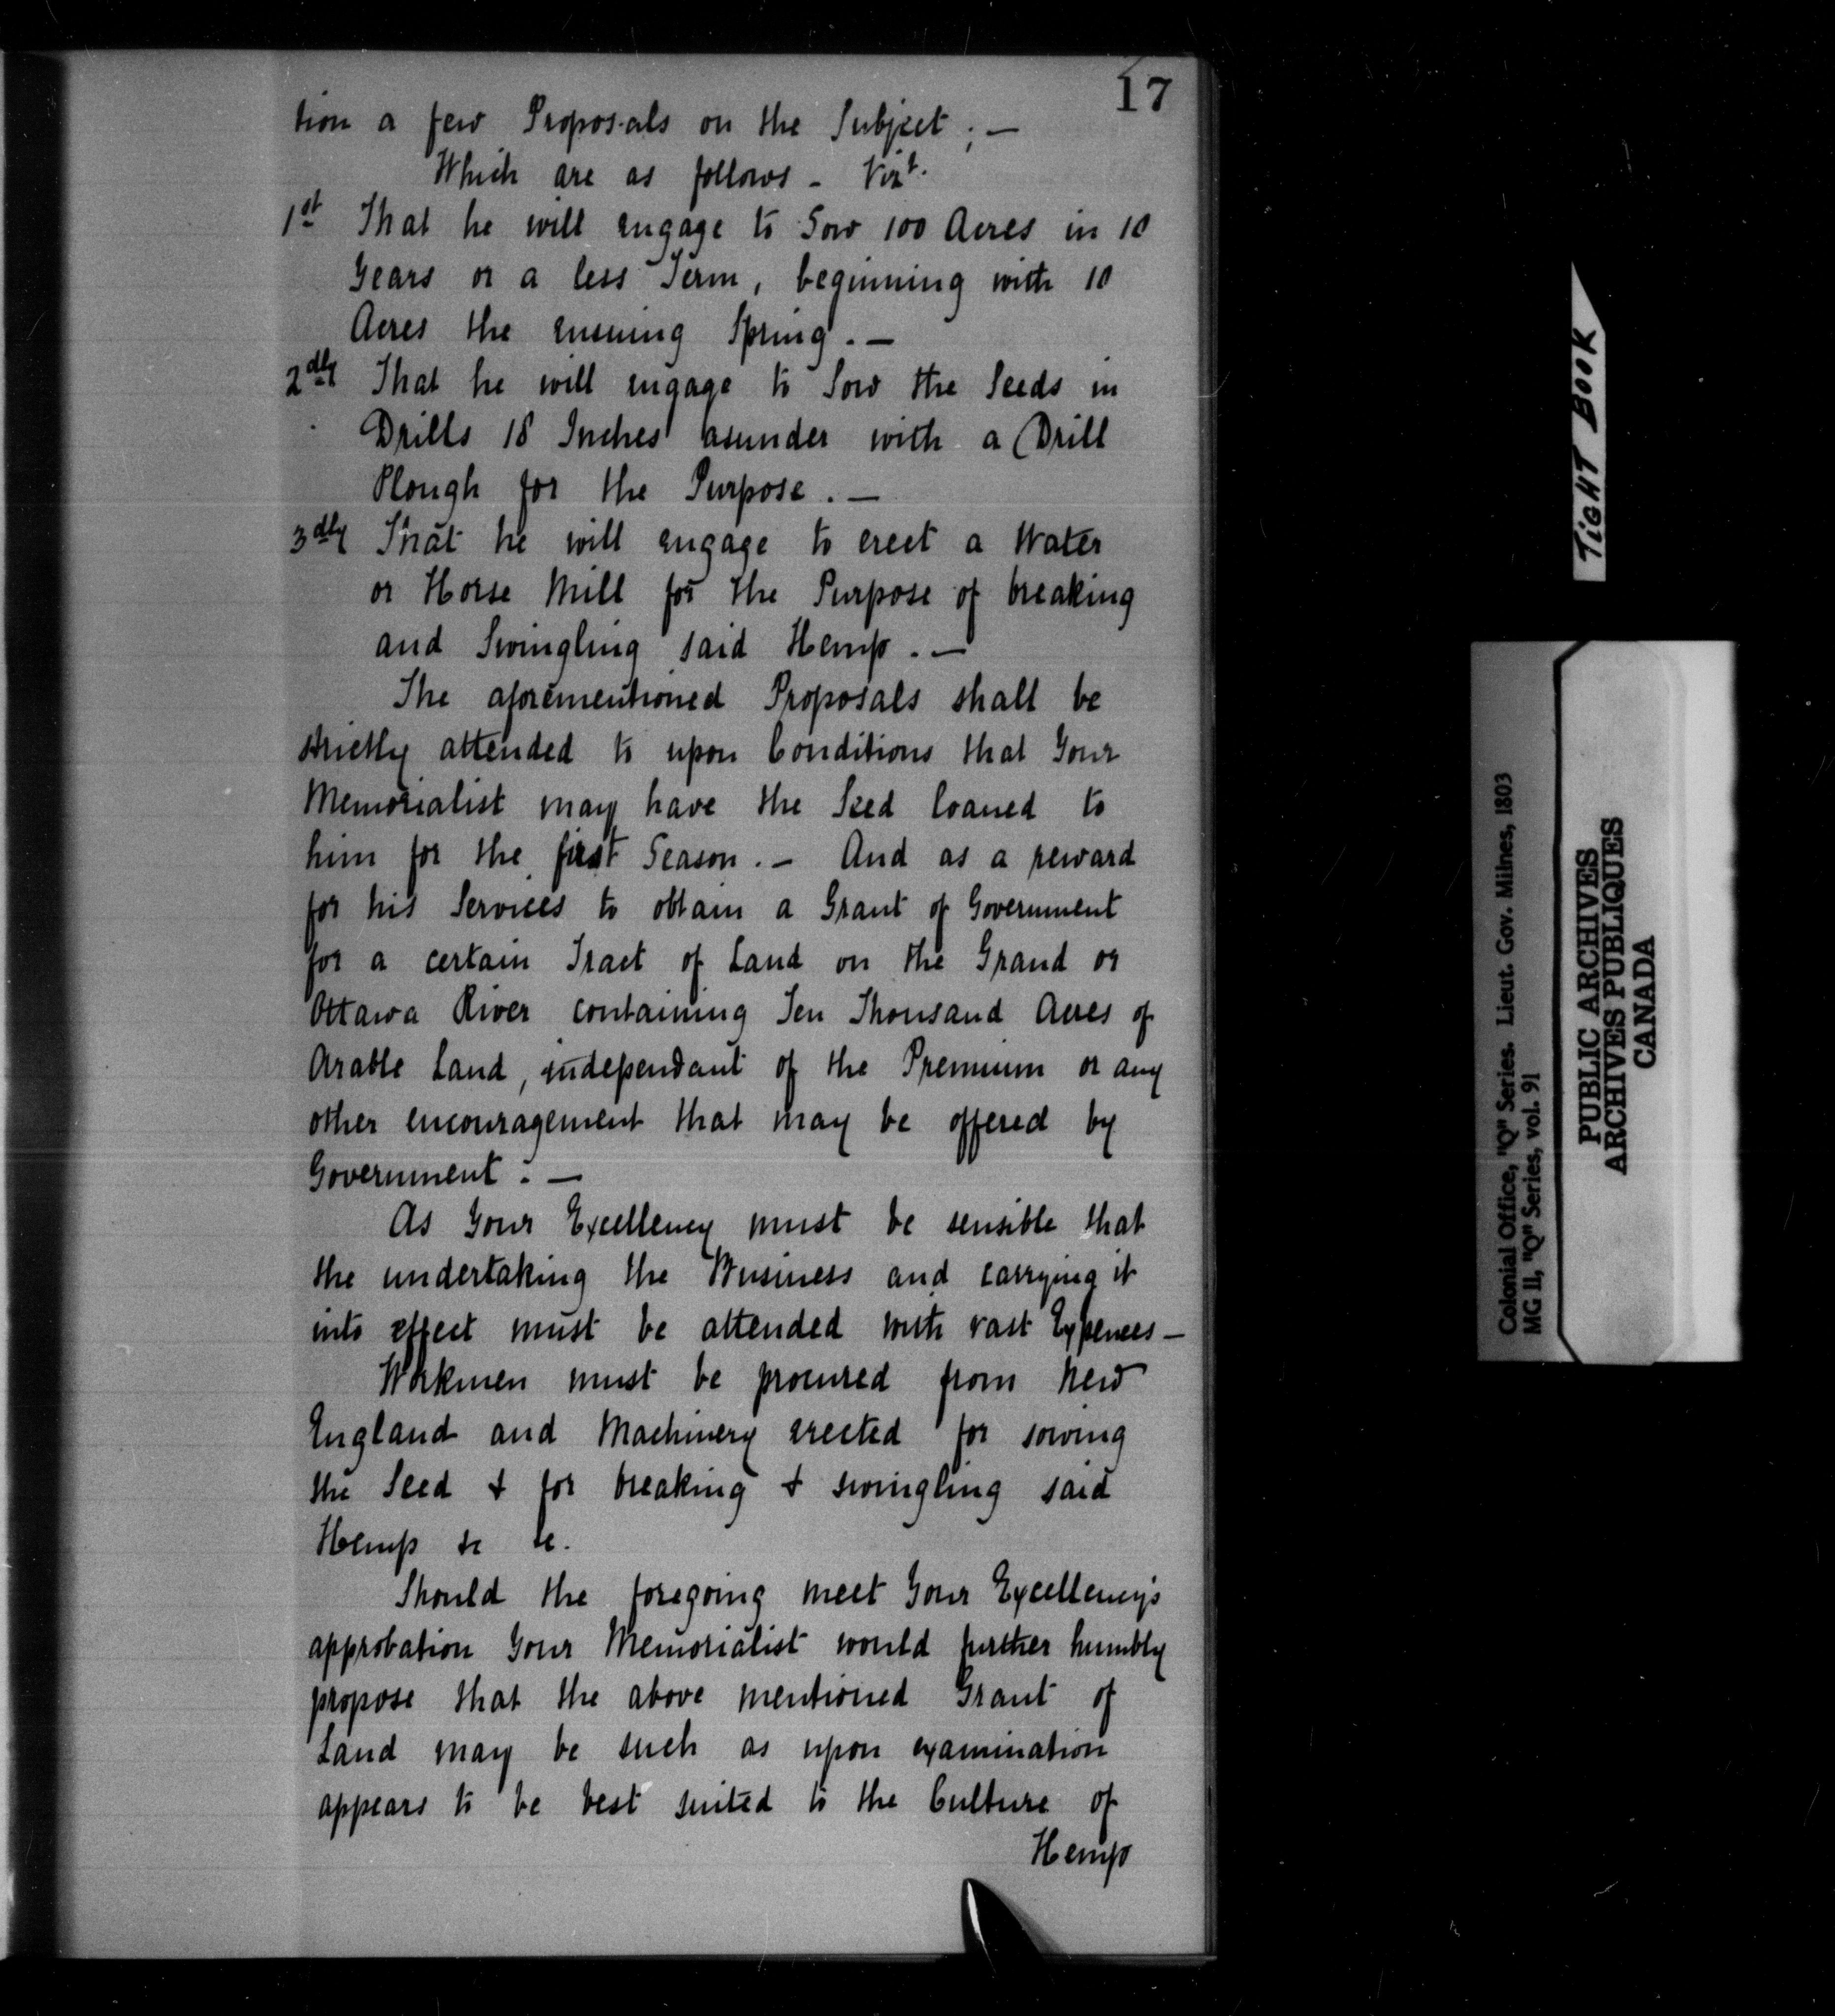 17
tion a few Proposals on the Subject ; —
Which are as follows - Vizt.
1st That he will engage to Sow 100 Acres in 10
Years or a less Term, beginning with 10
Acres the ensuing Spring. —
2dly That he will engage to Sow the Seeds in
Drills 18 Inches asunder with a Drill
Plough for the Purpose. —
3dly That he will engage to erect a Water
or Horse Mill for the Purpose of breaking
and Swingling said Hemp. —
The aforementioned Proposals shall be
strictly attended to upon Conditions that Your
Memorialist may have the Seed loaned to
him for the first Season. — And as a reward
for his Services to obtain a Grant of Government
for a certain Tract of Land on the Grand or
Ottawa River containing Ten Thousand Acres of
Arable Land, independant of the Premium or any
other encouragement that may be offered by
Government. —
As Your Excellency must be sensible that
the undertaking the Business and carrying it
into effect must be attended with vast Expences —
Workmen must be procured from New
England and Machinery erected for sowing
the Seed & for breaking & swingling said
Hemp &c &c.
Should the foregoing meet Your Excellency's
approbation Your Memorialist would further humbly
propose that the above mentioned Grant of
Land may be such as upon examination
appears to be best suited to the Culture of
Hemp
TIGHT BOOK
Colonial Office, "Q" Series. Lieut. Gov. Milnes, 1803
MG 11, "Q" Series, vol. 91
PUBLIC ARCHIVES
ARCHIVES PUBLIQUES
CANADA